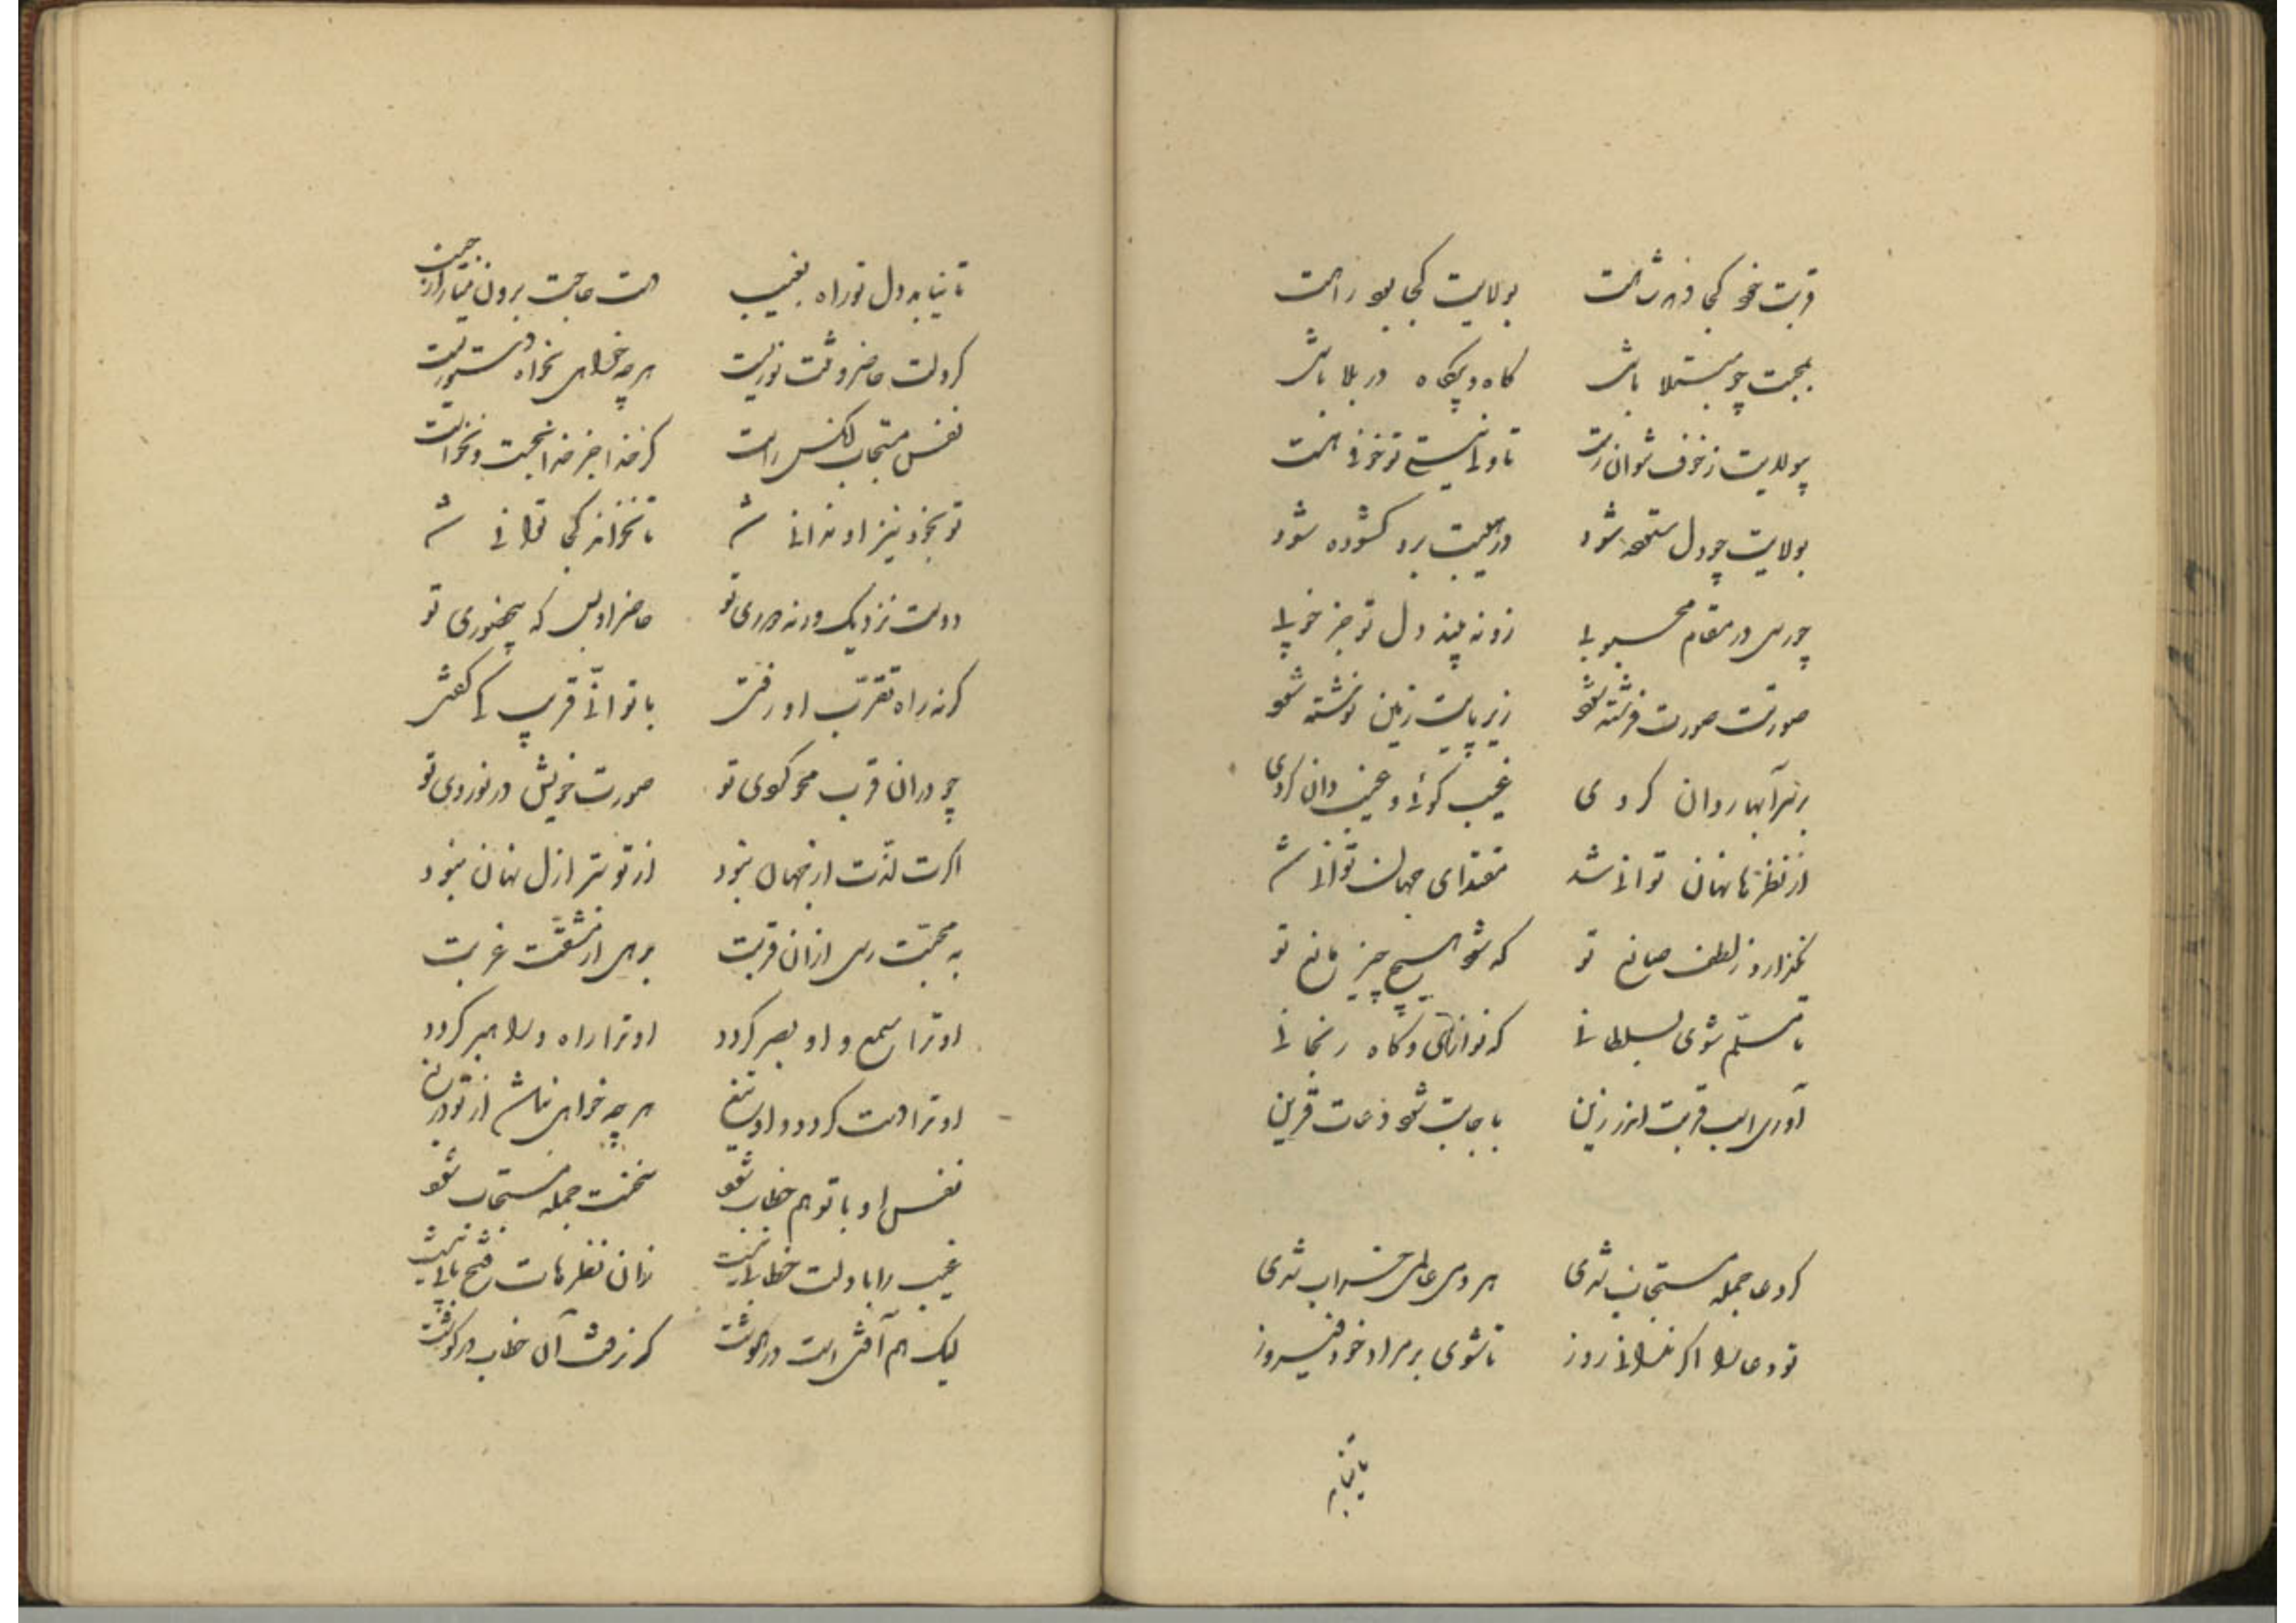 قربت خود کجا دهد شاهت بولایت کجا بود راهت
بمحبت چو مبتلا باشی گاه و بیگاه در بلا باشی
بولایت ز خوف نتوان رست تا ولی نیستی تو خوفی هست
بولایت چو دل ستوده شود در غیبت برو گشوده شود
چو رسی در مقام محبوبی زو نبیند دل تو جز خوبی
صورتت صورت فرشته شود زیر پایت زمین نوشته شود
بر سر آبها روان گردی غیب گوئی و غیب دان گردی
از نظرها نهان توانی شد مقتدای جهان توانی شد
نگذارد ز لطف صانع تو که شود هیچ چیز مانع تو
تا مسلم شوی بسلطانی که نوازانی و گاه رنجانی
آوری اسب قربت اندر زین باجابت شود دعات قرین
گر دعا جمله مستجاب شدی هر دمی عالمی خراب شدی
تو دعا را اگر ندانی روز تا شوی بر مراد خود فیروز
تا نیابد
تا نیابد دل تو راه بغیب هست حاجت برون نیار از جیب
گر دلت حاضر و تنت نوریست هر چه خواهی بخواه دستوریست
نفس مستجاب آنکس راست کز خدا جز خدا نجست و نخواست
تو بخود نیز او ندانی شد تا نخواند کجا توانی شد
دوست نزدیک ورنه دوری تو حاضر او بس که بیحضوری تو
گر نه راه تقرب او رفتی با تو انی قریب کی گفتی
چو در آن قرب محو گوی تو صورت خویش در نوردی تو
اگرت لذت از جهان نبود از تو سر ازل نهان نبود
به محبت رسی از آن قربت برهی از مشقت غربت
او ترا سمع و او بصر گردد او ترا راه و راهبر گردد
او ترا دست گردد و او تیغ هر چه خواهی نباشد از تو دریغ
نفس او با تو هم خطاب شود سخنت جمله مستجاب شود
غیب را با دلت خطابی نیست زان نظرهات فتح بابی نیست
لیک هم آتشی است در گوشت